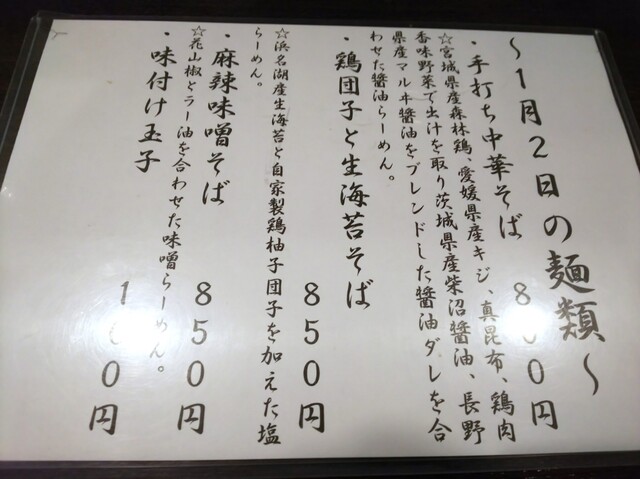 ～1月2日の麺類～
・手打ち中華そば 8 0円
☆宮城県産森林鶏、愛媛県産キジ、真昆布、鶏肉
香味野菜で出汁を取り茨城県産柴沼醤油、長野
県産マルヰ醤油をブレンドした醤油ダレを合
わせた醤油らーめん。
・鶏団子と生海苔そば 850円
☆浜名湖産生海苔と自家製鶏柚子団子を加えた塩
らーめん。
・麻辣味噌そば 850円
☆花山椒とラー油を合わせた味噌らーめん。
・味付け玉子 100円